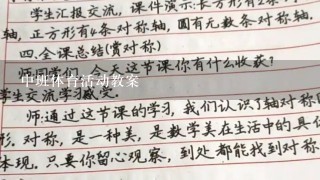 学生汇报交流，课件演示：长方形有2条
轴，正方形有4条对称轴，圆有无数条对称轴.
四.全课总结(赏对称)
今天这节课你有什么收获？
中班体育活动教案
学生交流学习
师：通过这节课的学习，我们认识了轴对称
形.对称，是一种美，是数学美在生活中的具
体现.只要你留心观察，到处都能找到对称